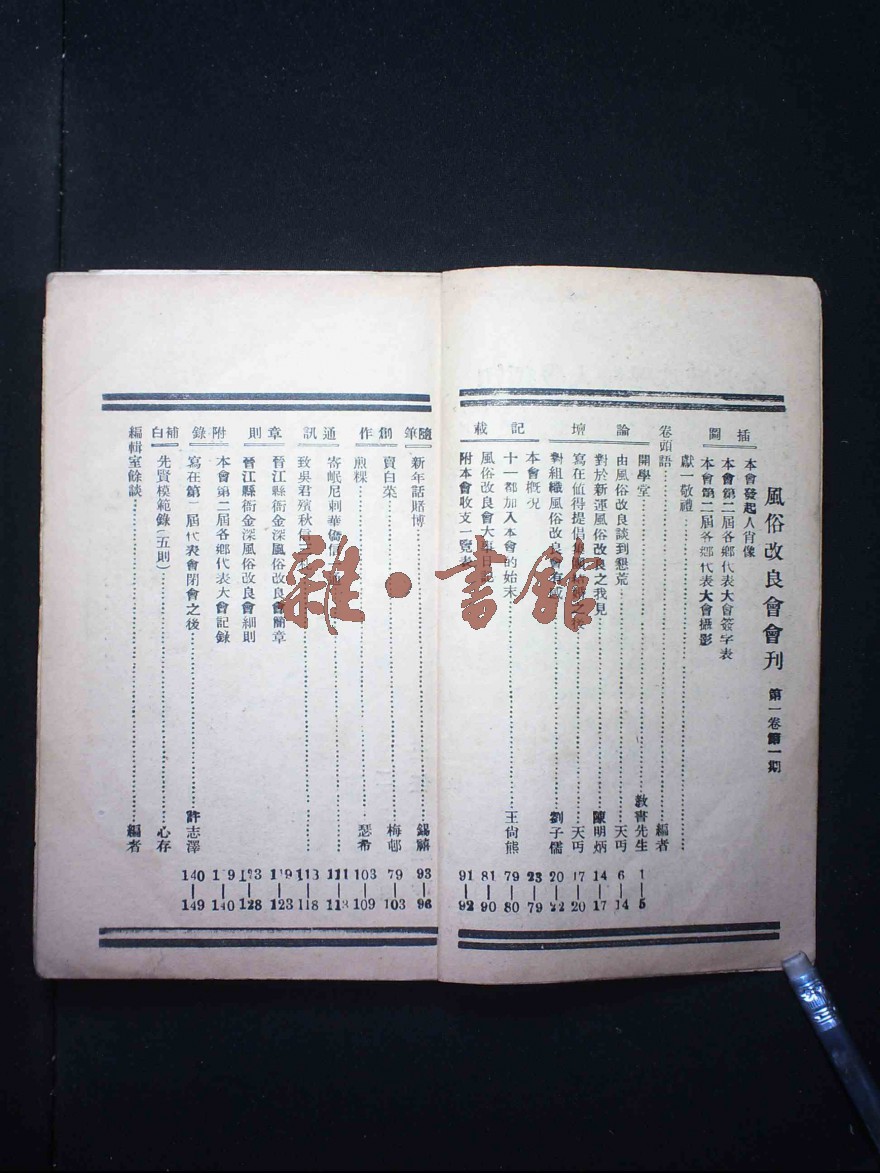 風俗改良會會刊 第一卷第一期
插圖
本會發起人肖像
本會第二屆各鄉代表大會簽字表
本會第二屆各鄉代表大會攝影
獻一敬禮
卷頭語 編者
論壇
開學堂 教書先生 1—5
由風俗改良談到懇荒 天丐 6—14
對於新運風俗改良之我見 陳明炳 14—17
寫在值得提倡 之後 天丐 17—20
對組織風俗改良會有感 劉子儒 20—22
記載
本會概況 23—79
十一都加入本會的始末 王尙熊 79—80
風俗改良會大事日記 81—90
附本會收支一覽表 91—92
隨筆
新年話賭博 錫麟 93—96
創作
賣白菜 梅邨 79—103
煎粿 瑟希 103—109
通訊
寄岷尼剌華僑信 111—113
致吳君殯秋信 113—118
章則
晉江縣衙金深風俗改良會簡章 119—123
晉江縣衙金深風俗改良會細則 123—128
附錄
本會第二屆各鄉代表大會記録 —140
寫在第二屆代表會閉會之後 許志澤 140—149
補白
先賢模範錄(五則) 心存
編輯室餘談 編者
雜·書館